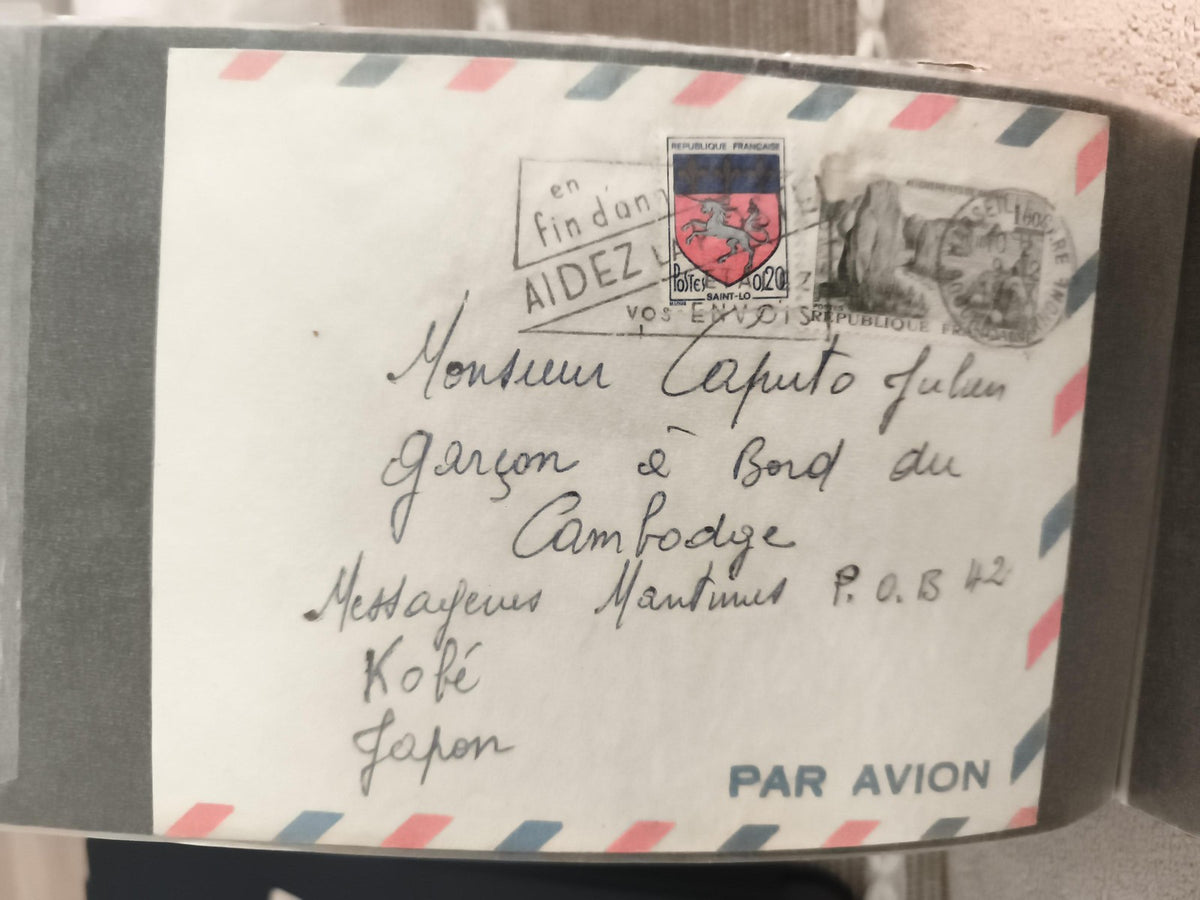 REPUBLIQUE FRANÇAISE
en
fin d'ann
AIDEZ LA
POSTES 0,20
SAINT-LO
VOS ENVOIS
REPUBLIQUE
MARSEILLE
Monsieur Caputo Julien
garçon à Bord du
Cambodge
Messageries Maritimes P.O.B 42
Kobé
Japon
PAR AVION